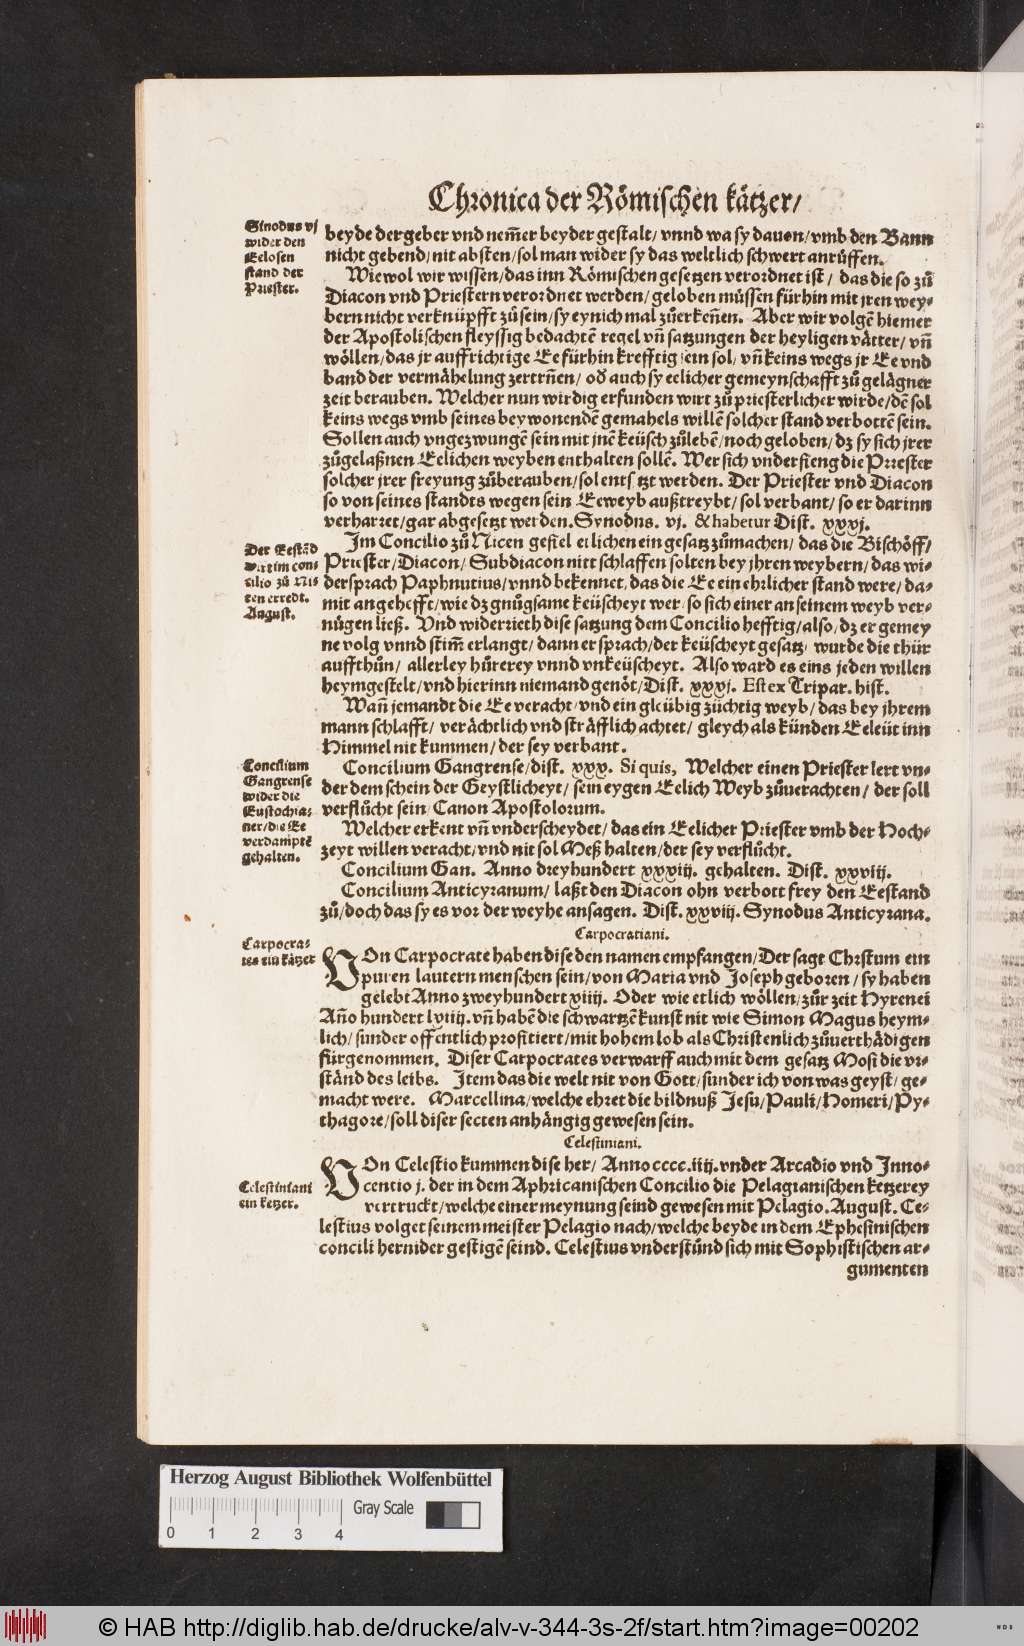 Chronica der Römischen kätzer/
Sinodus vj
wider den
Eelosen
stand der
Priester.
beyde der geber vnd nem̃er beyder gestalt/ vnnd wa sy dauon/ vmb den Bann
nicht gebend/ nit absten/ sol man wider sy das weltlich schwert anrůffen.
Wiewol wir wissen/ das inn Römischen gesetzen verordnet ist/ das die so zů
Diacon vnd Priestern verordnet werden/ geloben müssen fürhin mit jren wey-
bern nicht verknüpfft zů sein/ sy eynich mal zůerkeñen. Aber wir volgẽ hiemer
der Apostolischen fleyssig bedachtẽ regel vñ satzungen der heyligen vätter/ vñ
wöllen/ das jr auffrichtige Ee fürhin krefftig sein sol/ vñ keins wegs jr Ee vnd
band der vermähelung zertreñen/ oď auch sy eelicher gemeynschafft zů gelägner
zeit berauben. Welcher nun wirdig erfunden wirt zů priesterlicher wirde/ dẽ sol
keins wegs vmb seines beywonendẽ gemahels willẽ solcher stand verbottẽ sein.
Sollen auch vngezwungẽ sein mit jnẽ keüsch zůlebẽ/ noch geloben/ dz sy sich jrer
zůgelaßnen Eelichen weyben enthalten sollẽ. Wer sich vnderfieng die Priester
solcher jrer freyung zůberauben/ sol entsetzt werden. Der Priester vnd Diacon
so von seines standts wegen sein Eeweyb außtreybt/ sol verbant/ so er darinn
verharret/ gar abgesetzt werden. Synodus. vj. & habetur Dist. xxxj.
Der Eestãd
wirt im con-
cilio zů Ni-
cen erredt.
August.
Im Concilio zů Nicen gefiel etlichen ein gesatz zůmachen/ das die Bischöff/
Priester/ Diacon/ Subdiacon nitt schlaffen solten bey jhren weybern/ das wi-
dersprach Paphnutius/ vnnd bekennet/ das die Ee ein ehrlicher stand were/ da-
mit angehefft/ wie dz gnůgsame keüscheyt wer/ so sich einer an seinem weyb ver-
nügen ließ. Vnd widerrieth dise satzung dem Concilio hefftig/ also/ dz er gemey
ne volg vnnd stim̃ erlangt/ dann er sprach/ der keüscheyt gesatz/ wurde die thür
auffthůn/ allerley hůrerey vnnd vnkeüscheyt. Also ward es eins jeden willen
heymgestelt/ vnd hierinn niemand genöt/ Dist. xxxj. Est ex Tripar. hist.
Wañ jemandt die Ee veracht/ vnd ein glöubig züchtig weyb/ das bey jhrem
mann schlafft/ verächtlich vnd sträfflich achtet/ gleych als künden Eeleüt inn
Himmel nit kummen/ der sey verbant.
Concilium
Gangrense
wider die
Eustochia-
ner/ die Ee
verdamptẽ
gehalten.
Concilium Gangrense/ dist. xxx. Si quis, Welcher einen Priester lert vn-
der dem schein der Geystlicheyt/ sein eygen Eelich Weyb zůuerachten/ der soll
verflůcht sein/ Canon Apostolorum.
Welcher erkent vñ vnderscheydet/ das ein Eelicher Priester vmb der Hoch-
zeyt willen veracht/ vnd nit sol Meß halten/ der sey verflůcht.
Concilium Gan. Anno dreyhundert xxxiij. gehalten. Dist. xxviij.
Concilium Anticyranum/ laßt den Diacon ohn verbott frey den Eestand
zů/ doch das sy es vor der weyhe ansagen. Dist. xxviij. Synodus Anticyrana.
Carpocratiani.
Carpocra-
tes ein kätzer
VOn Carpocrate haben dise den namen empfangen/ Der sagt Chrstum ein
puren lautern menschen sein/ von Maria vnd Joseph geboren/ sy haben
gelebt Anno zweyhundert xiiij. Oder wie etlich wöllen/ zůr zeit Hyrenei
Año hundert lxiiij. vñ habẽ die schwartzẽ kunst nit wie Simon Magus heym-
lich/ sunder offentlich profitiert/ mit hohem lob als Christenlich zůuerthädigen
fürgenommen. Diser Carpocrates verwarff auch mit dem gesatz Mosi die vr-
ständ des leibs. Item das die welt nit von Gott/ sunder ich von was geyst/ ge-
macht were. Marcellina/ welche ehret die bildnuß Jesu/ Pauli/ Homeri/ Py-
thagore/ soll diser secten anhängig gewesen sein.
Celestiniani.
Celestiniani
ein ketzer.
VOn Celestio kummen dise her/ Anno cccc.iiij. vnder Arcadio vnd Inno-
centio j. der in dem Aphricanischen Concilio die Pelagianischen ketzerey
vertruckt/ welche einer meynung seind gewesen mit Pelagio. August. Ce-
lestius volget seinem meister Pelagio nach/ welche beyde in dem Ephesinischen
concili hernider gestigẽ seind. Celestius vnderstůnd sich mit Sophistischen ar-
gumenten
Herzog August Bibliothek Wolfenbüttel
Gray Scale
0 1 2 3 4
© HAB http://diglib.hab.de/drucke/alv-v-344-3s-2f/start.htm?image=00202